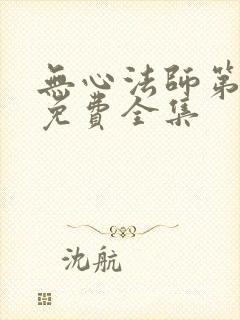 無心法師第
免費全集
沈航